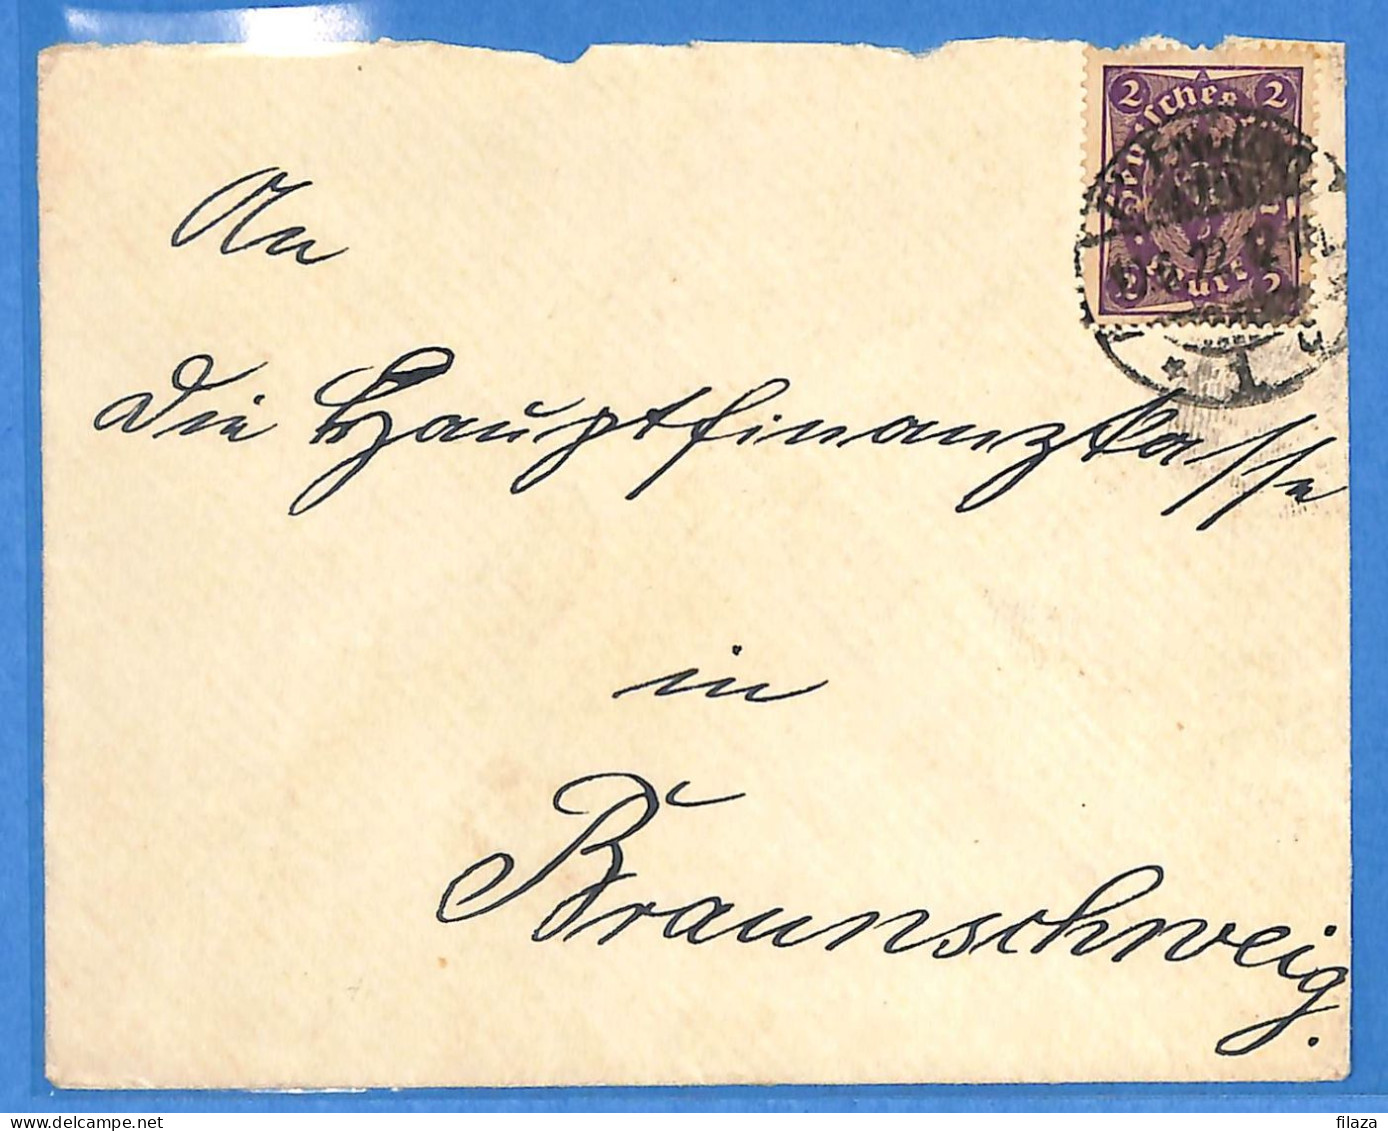 An
die Hauptfinanzkasse
in
Braunschweig.
2 Deutsches 2
Reich
2 Mark 2
22
* 1
filaza
delcampe.net